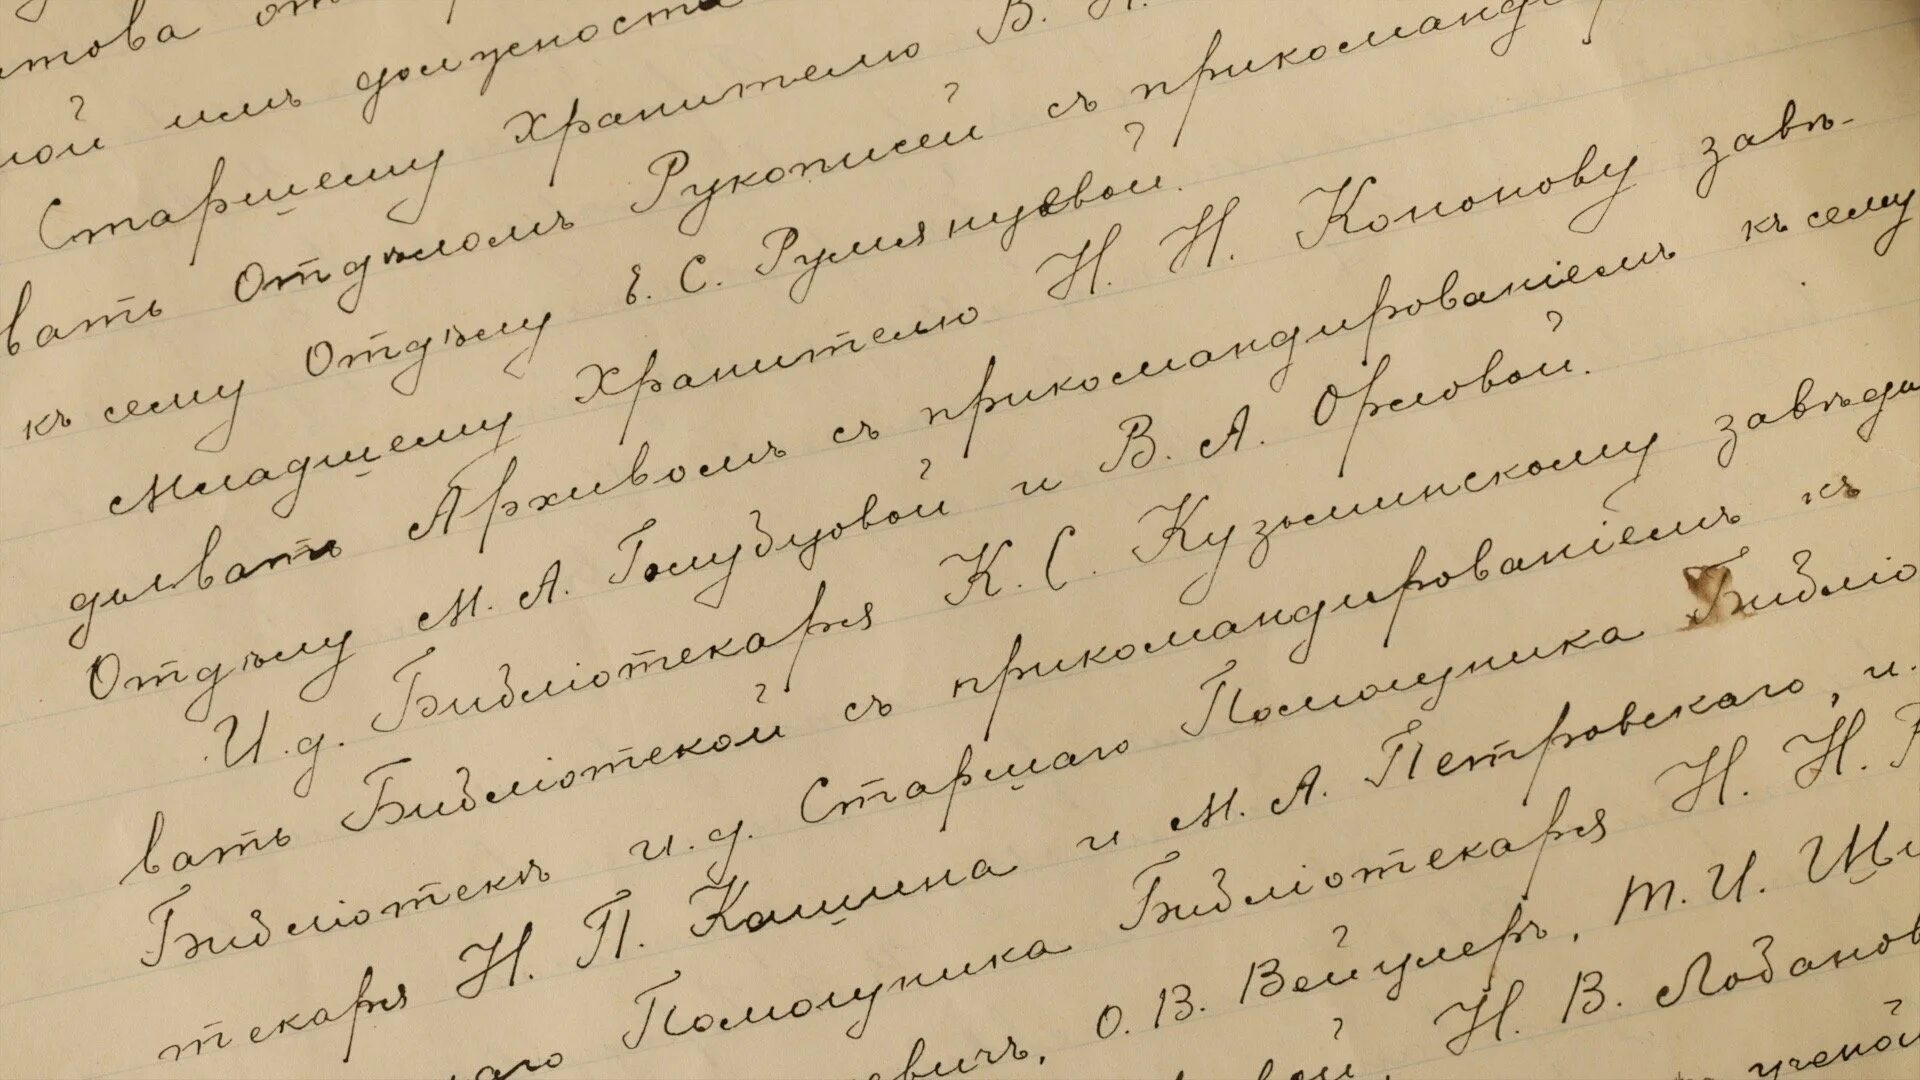 ной имъ должности
Старшему Хранителю В. Н.
вать Отдѣломъ Рукописей съ прикоманди
къ сему Отдѣлу Е. С. Румянцевой.
Младшему Хранителю Н. Н. Кононову завѣ-
дывать Архивомъ съ прикомандированіемъ къ сему
Отдѣлу М. А. Голубцовой и В. А. Орловой.
И. д. Библіотекаря К. С. Кузьминскому завѣды
вать Библіотекой съ прикомандированіемъ къ
Библіотекѣ и. д. Старшаго Помощника Библіо
текаря Н. П. Кашина и М. А. Петровскаго, и.
Помощника Библіотекаря Н. Н.
евичъ, О. В. Вейцлеръ, Т. И.
вой, Н. В. Лобанов
ученой